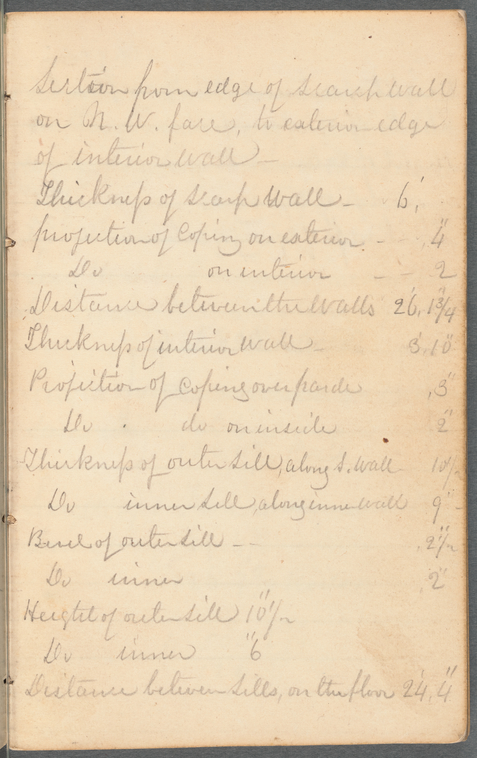 Section from edge of scarp wall
on N.W. face, to exterior edge
of interior wall —
Thickness of scarp wall — 6',
projection of Coping on exterior — ,4"
Do on interior — — 2
Distance between the walls 26', 1 3/4"
Thickness of interior wall — 3', 10"
Projection of coping over parade ,3"
Do . do on inside 2"
Thickness of outer sill, along S. wall 10 1/2
Do inner sill, along inner wall 9"
Bevel of outer sill — — ,2 1/2"
Do inner ,2"
Height of outer sill 10" 1/2
Do inner 6"
Distance between sills, on the floor 24', 4"